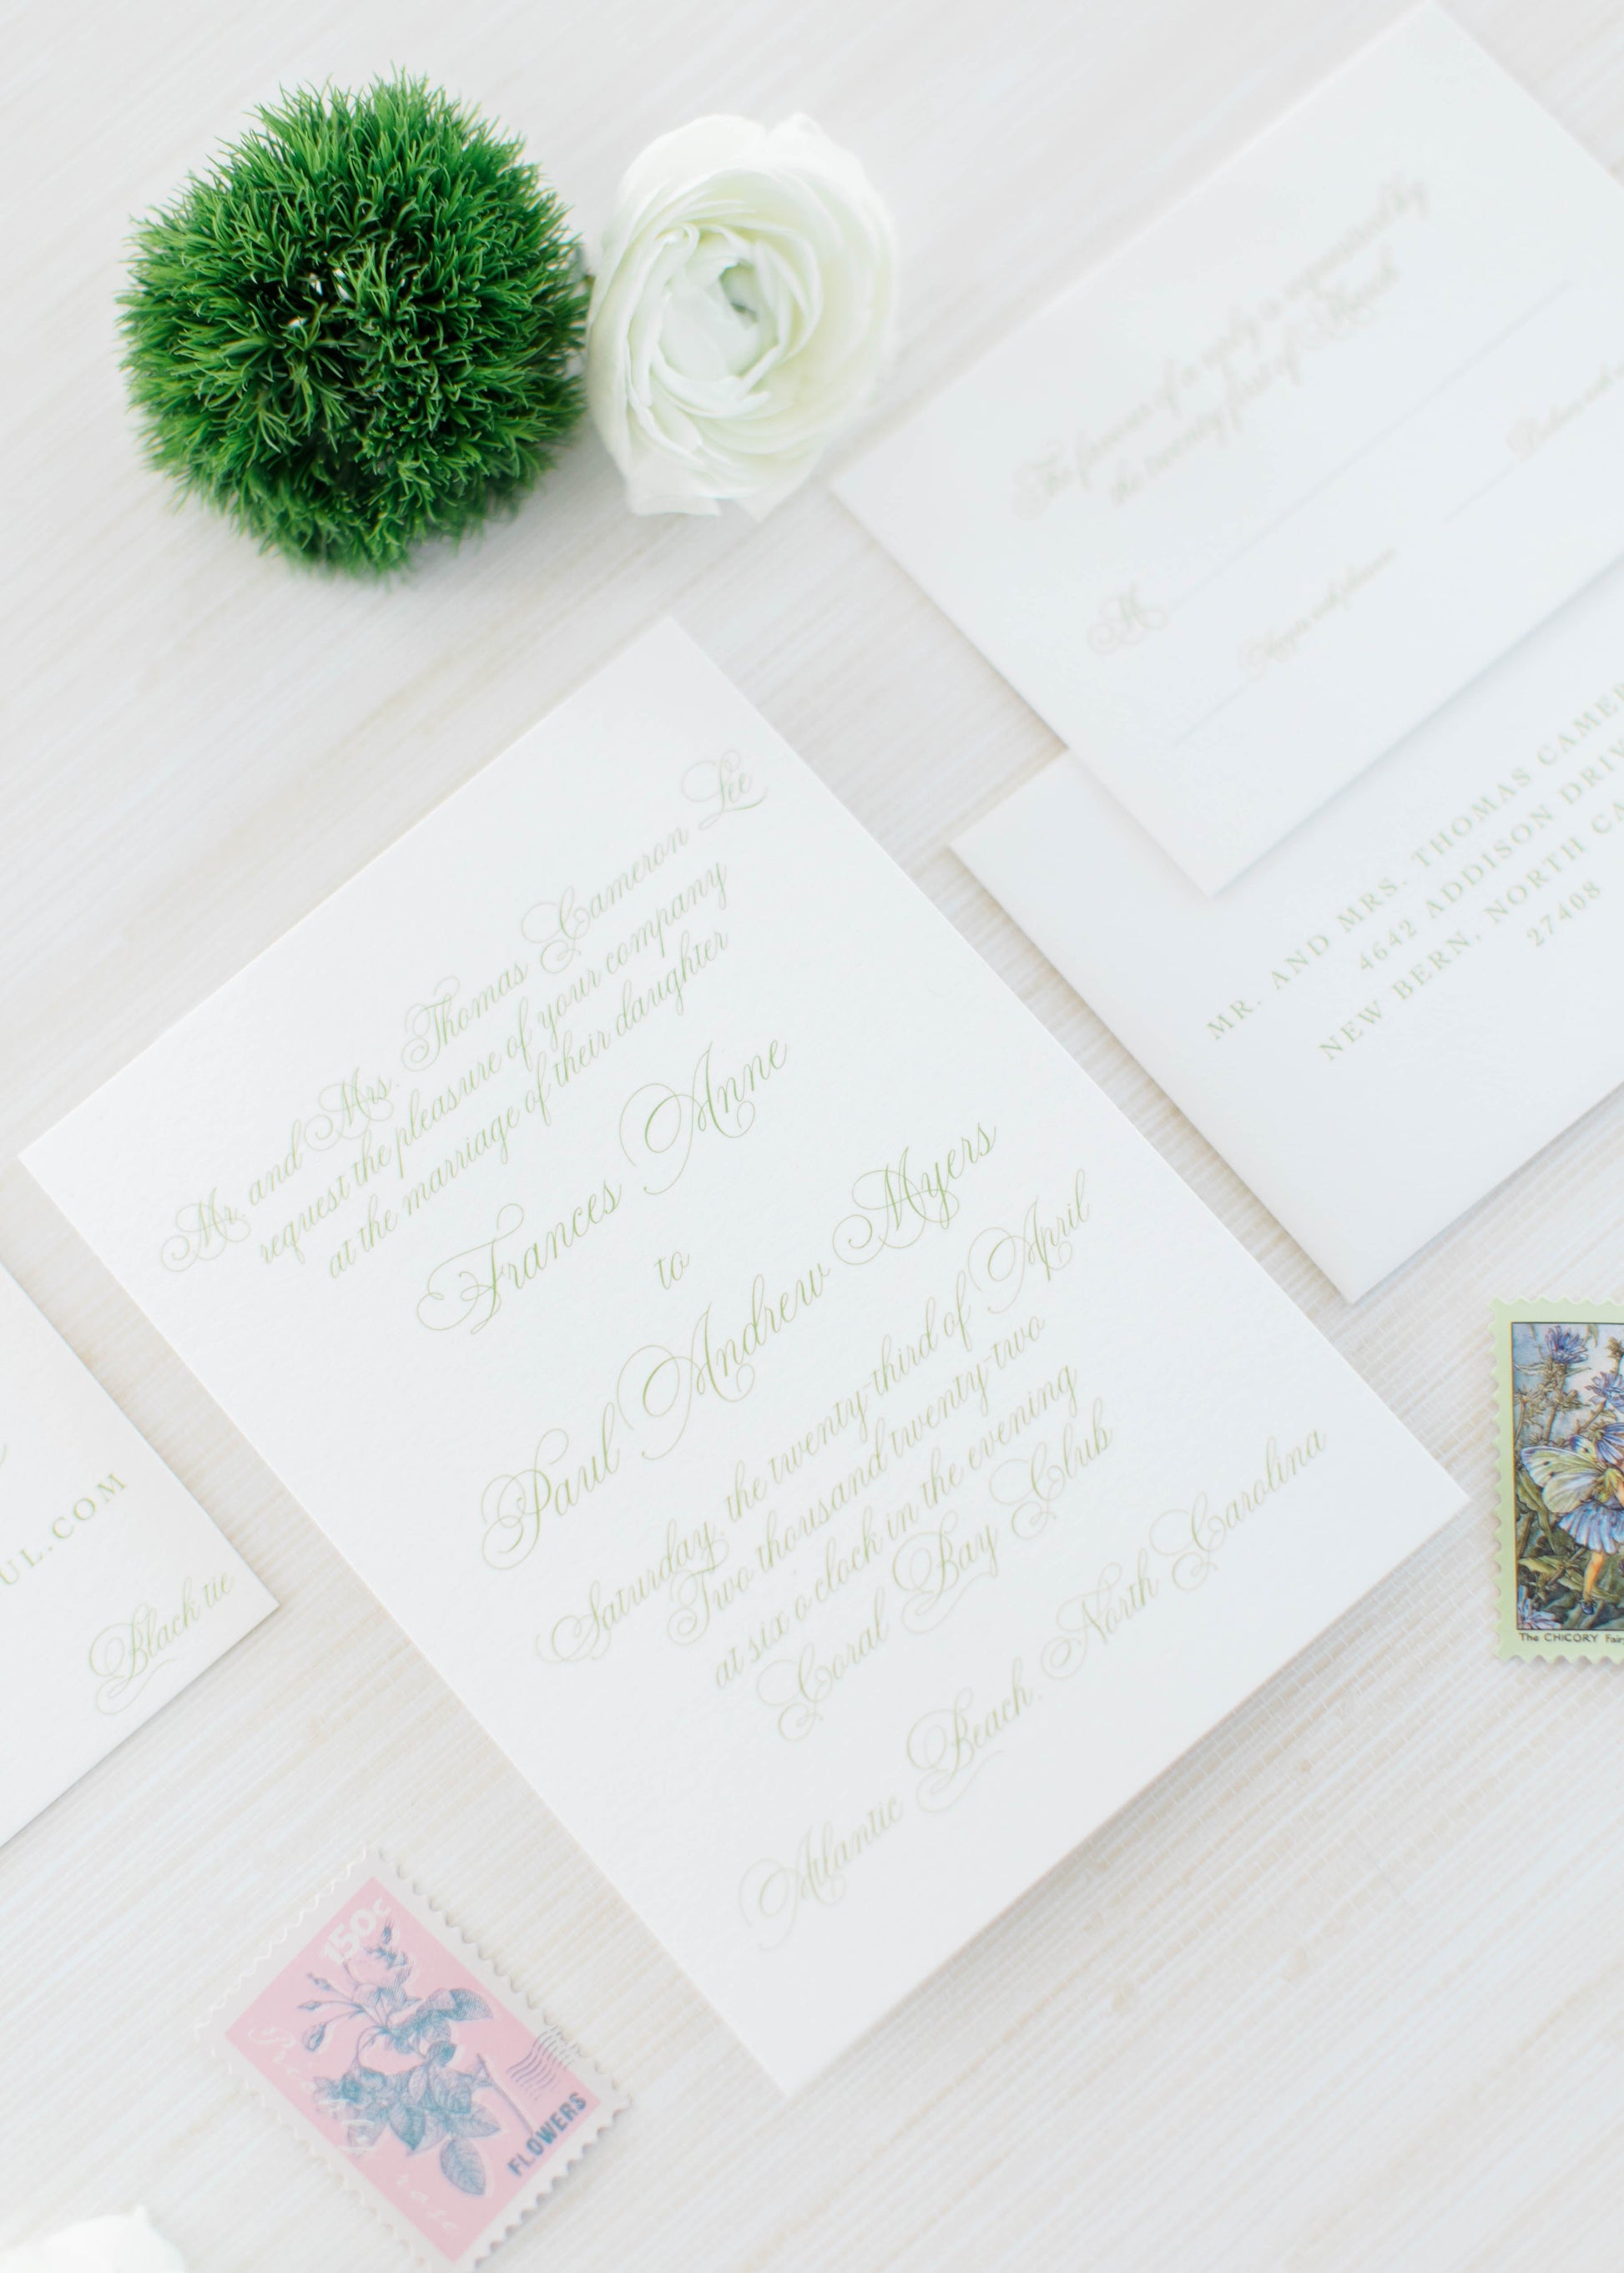 The favour of a reply is requested by
the twenty first of March
M
MR. AND MRS. THOMAS CAMER
4642 ADDISON DRIV
NEW BERN, NORTH CA
27408
Mr. and Mrs. Thomas Cameron Lee
request the pleasure of your company
at the marriage of their daughter
Frances Anne
to
Paul Andrew Myers
Saturday, the twenty-third of April
Two thousand twenty-two
at six o'clock in the evening
Coral Bay Club
Atlantic Beach, North Carolina
UL.COM
Black tie
The CHICORY Fair
150c
FLOWERS